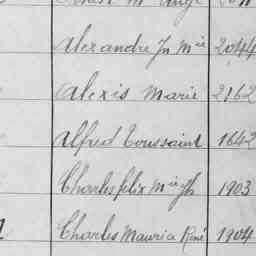 Alexandre Jn Mie 2044
Alexis Marie 2162
Alfred Toussaint 1642
Charles felix Mie Jh 1903
Charles Maurice René 1904